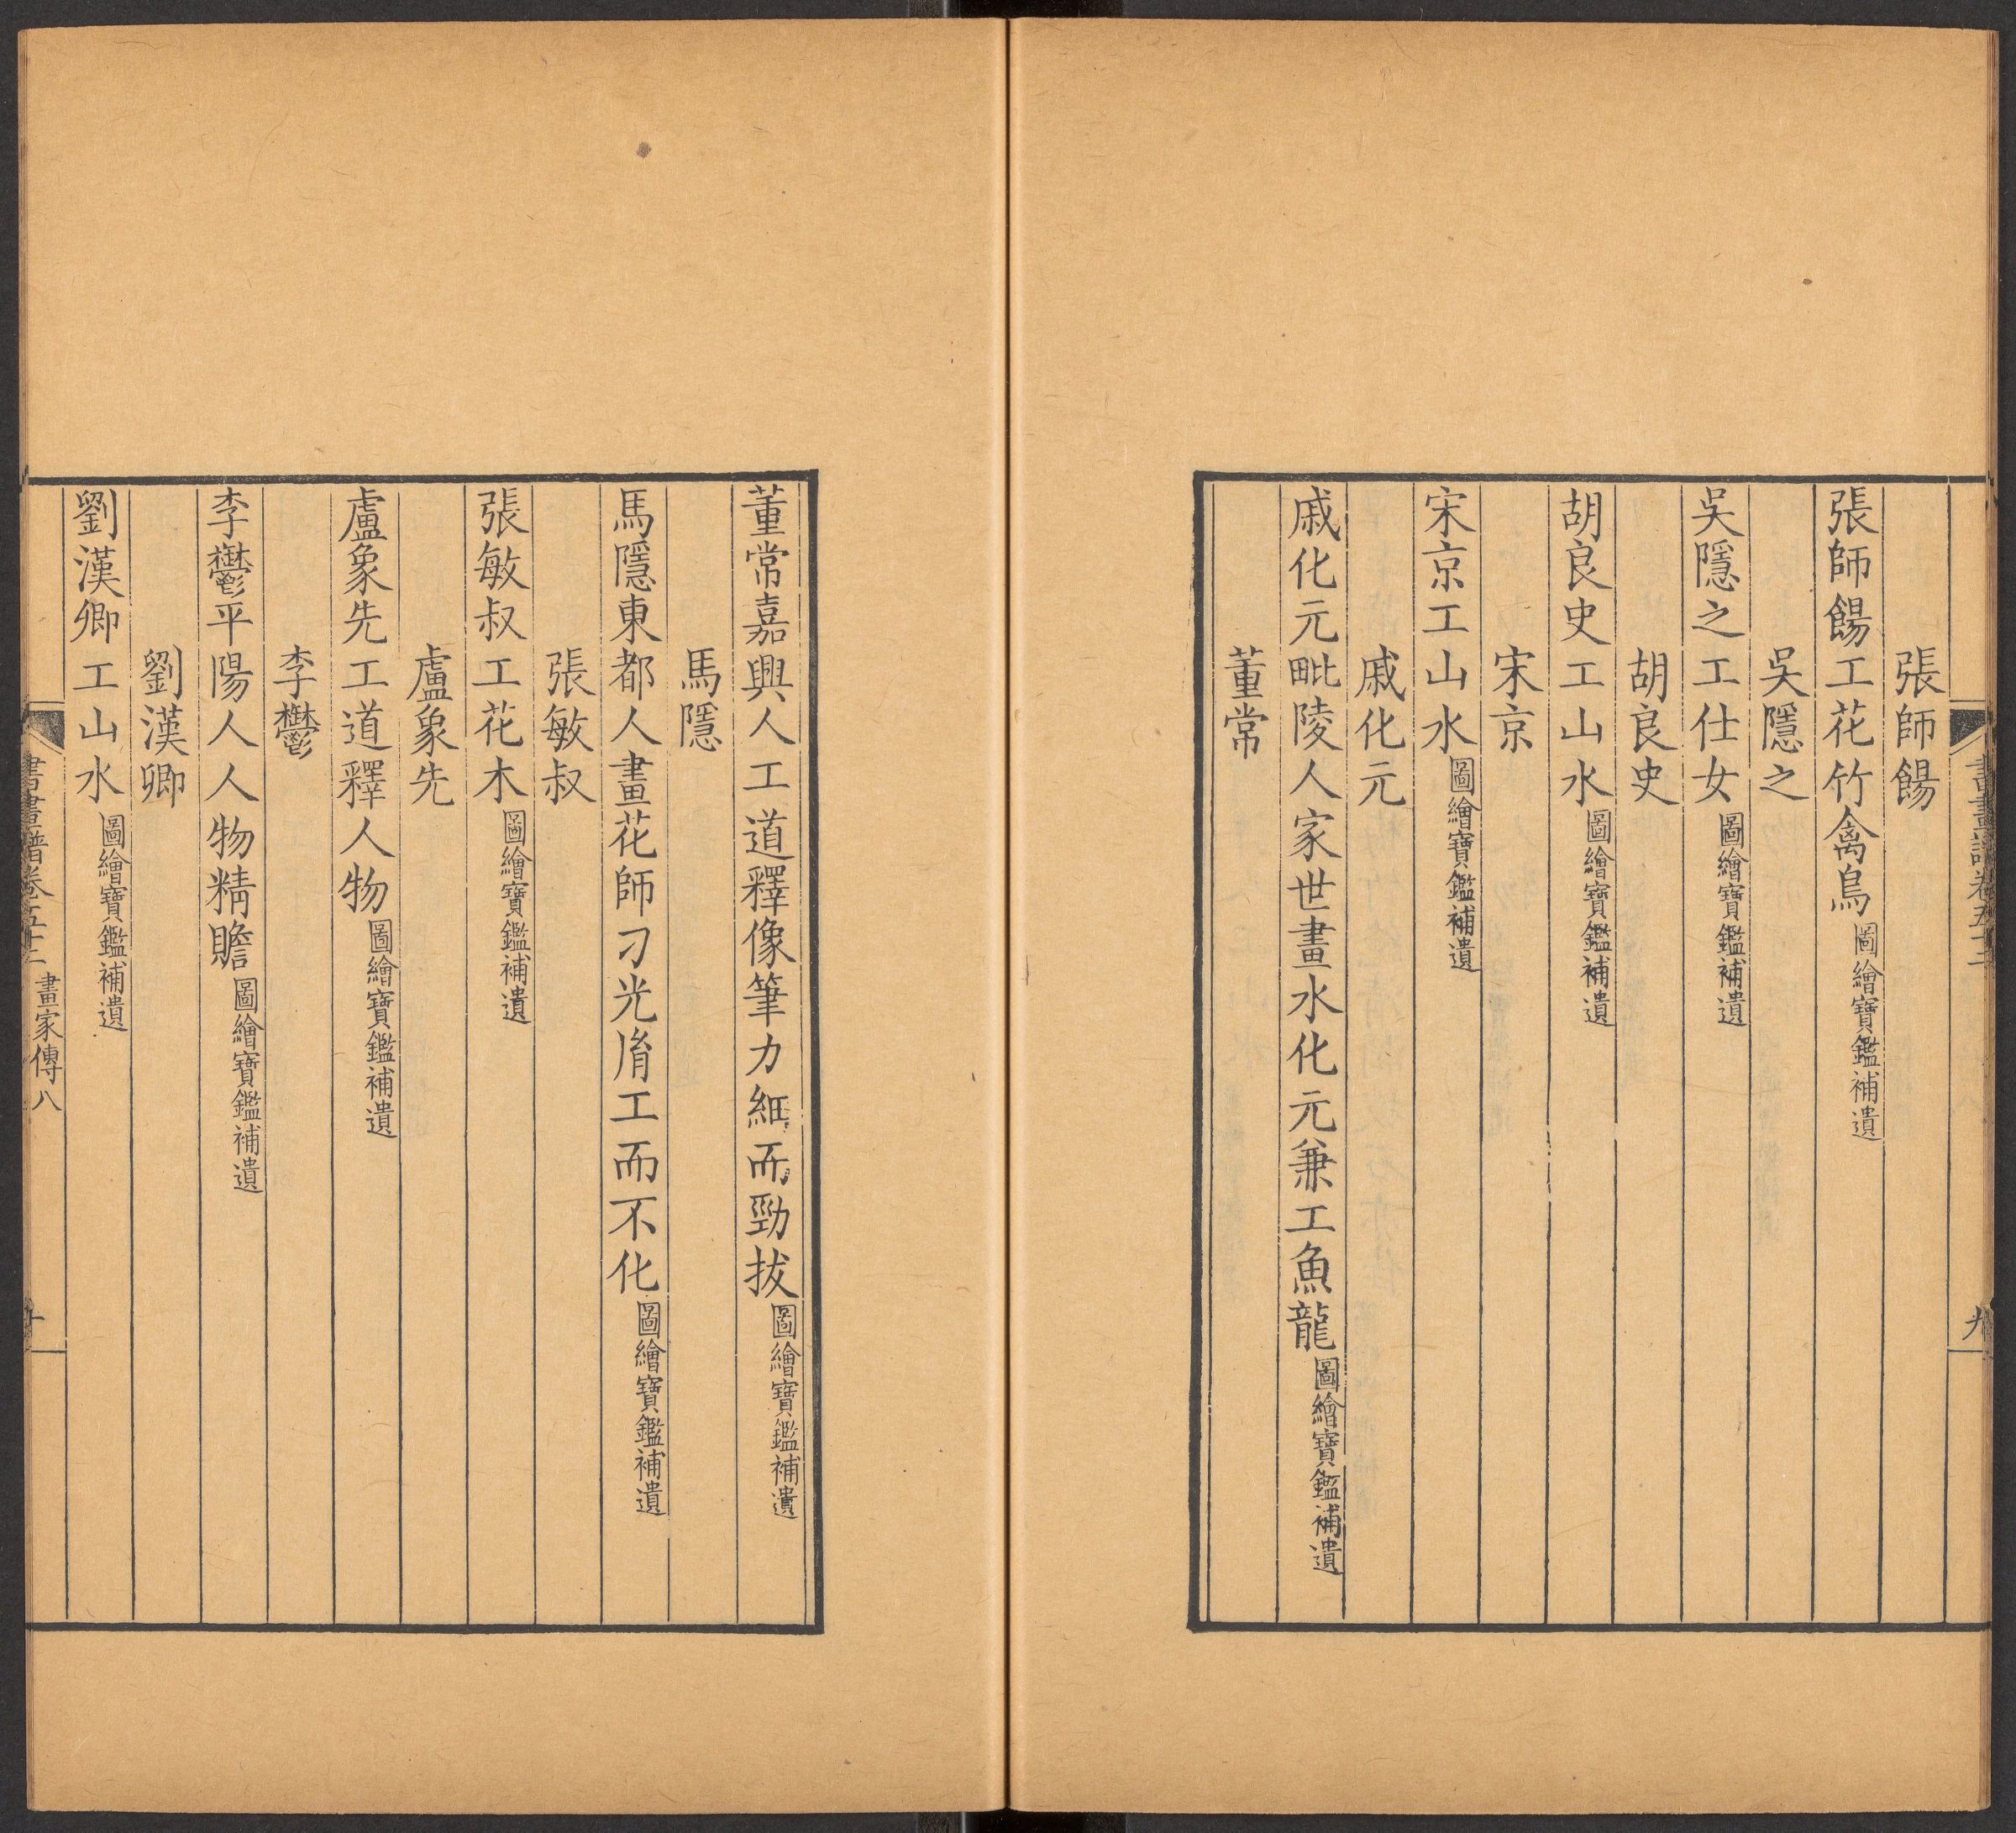 書畫譜卷五十三
九
張師餳
張師餳工花竹禽鳥圖繪寶鑑補遺
吳隱之
吳隱之工仕女圖繪寶鑑補遺
胡良史
胡良史工山水圖繪寶鑑補遺
宋京
宋京工山水圖繪寶鑑補遺
戚化元
戚化元毗陵人家世畫水化元兼工魚龍圖繪寶鑑補遺
董常
董常嘉興人工道釋像筆力細而勁拔圖繪寶鑑補遺
馬隱
馬隱東都人畫花師刁光胤工而不化圖繪寶鑑補遺
張敏叔
張敏叔工花木圖繪寶鑑補遺
盧象先
盧象先工道釋人物圖繪寶鑑補遺
李鬱
李鬱平陽人人物精贍圖繪寶鑑補遺
劉漢卿
劉漢卿工山水圖繪寶鑑補遺
書畫譜卷五十三 畫家傳八
十